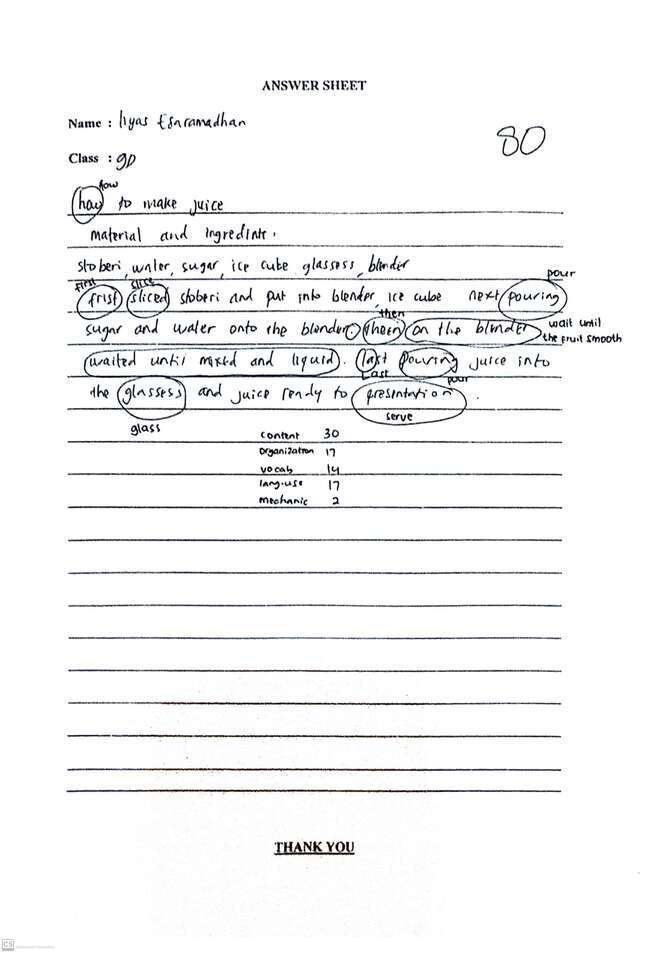 ANSWER SHEET
Name : Ilyas Esaramadhan
80
Class : 9D
how
hay to make juice
material and ingredints.
stoberi, water, sugar, ice cube glassess, blender
first slice pour
frist sliced stoberi and put into blender, ice cube next pouring
then
sugar and water onto the blender. theen on the blender wait until
the fruit smooth
waited until mixed and liquid. last pouring juice into
Last pour
the glassess and juice ready to presentation.
serve
glass
content 30
organization 17
vocab 14
lang.use 17
mechanic 2
THANK YOU
CS